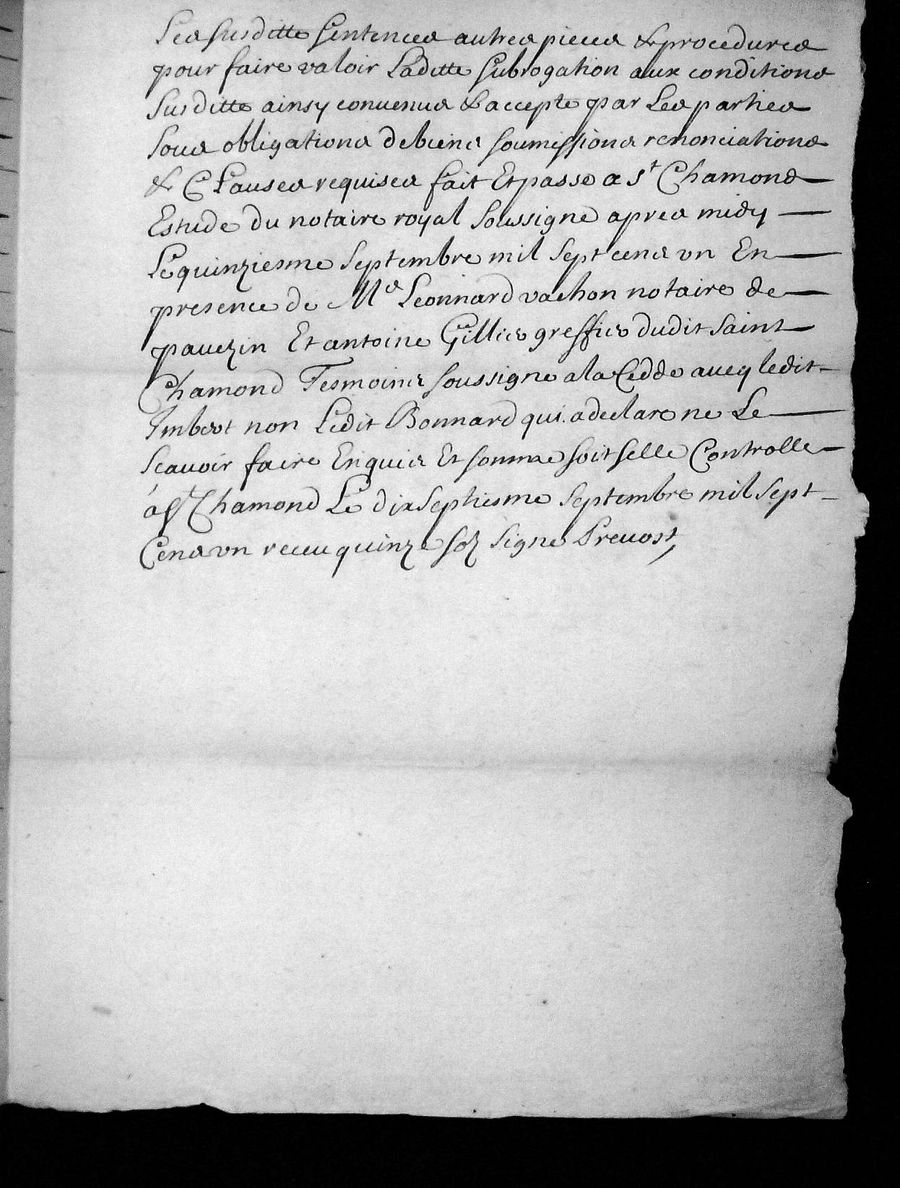 Les susditte sentences autres pieces & procedures
pour faire valoir Laditte subrogation aux conditions
susditte ainsy convenus & accepte par Les parties
sous obligations de biens soumissions renonciations
& Clauses requises fait Et passe a St Chamond
Estude du notaire royal soussigne apres midy
Le quinziesme septembre mil sept cens un En
presence de Me Leonnard vachon notaire de
pavezin Et antoine Gillier greffier dudit saint
Chamond Tesmoins soussigne a la Cedde avecq ledit
Imbert non Ledit Bonnard qui a declare ne Le
scavoir faire Enquis Et somme soit selle Controlle
a St Chamond Le dix septiesme septembre mil sept
Cens un receu quinze solz signe Prevost,